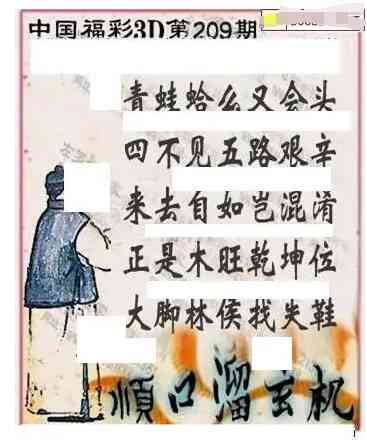 中国福彩3D第209期
青蛙蛤么又会头
四不见五路艰辛
来去自如岂混淆
正是木旺乾坤位
大脚林侯找失鞋
顺口溜玄机